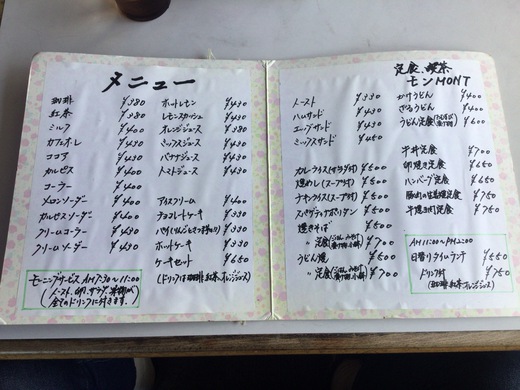 メニュー
珈琲 ¥380
紅茶 ¥380
ミルク ¥400
カフェオーレ ¥430
ココア ¥430
カルピス ¥400
コーラー ¥400
メロンソーダー ¥400
カルピスソーダー ¥430
クリームコーラー ¥430
クリームソーダー ¥430
モーニングサービス AM7:30〜11:00
全てのドリンクに付きます。
ホットレモン ¥430
レモンスカッシュ ¥430
オレンジジュース ¥380
ミックスジュース ¥430
バナナジュース ¥430
トマトジュース ¥430
アイスクリーム ¥400
チョコレートケーキ ¥330
ホットケーキ ¥330
ケーキセット ¥650
(ドリンクは珈琲.紅茶.オレンジジュース)
定食、喫茶
モンMONT
トースト ¥330
ハムサンド ¥430
エッグサンド ¥430
ミックスサンド ¥450
カレーライス(サラダ付) ¥500
焼めし(スープ付) ¥500
チキンライス(スープ付) ¥500
スパゲティナポリタン ¥500
焼きそば ¥500
〃 定食 ¥700
うどん焼 ¥500
〃 定食 ¥700
かけうどん ¥400
ざるうどん ¥400
うどん定食 ¥600
牛丼定食 ¥700
卵焼き定食 ¥650
ハンバーグ定食 ¥650
豚肉の生姜焼定食 ¥750
牛焼肉定食 ¥750
AM11:00〜PM2:00
日替りタイムランチ ¥550
ドリンク付 ¥750
(珈琲.紅茶.オレンジジュース)